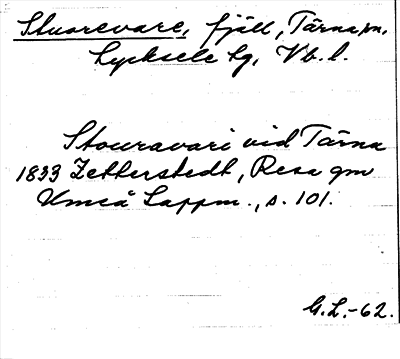 Stuorevare, fjäll, Tärna sn,
Lycksele lg, Vb. l.
Stouravari vid Tärna
1833 Zetterstedt, Resa gm
Umeå Lappm., s. 101.
G.L.-62.